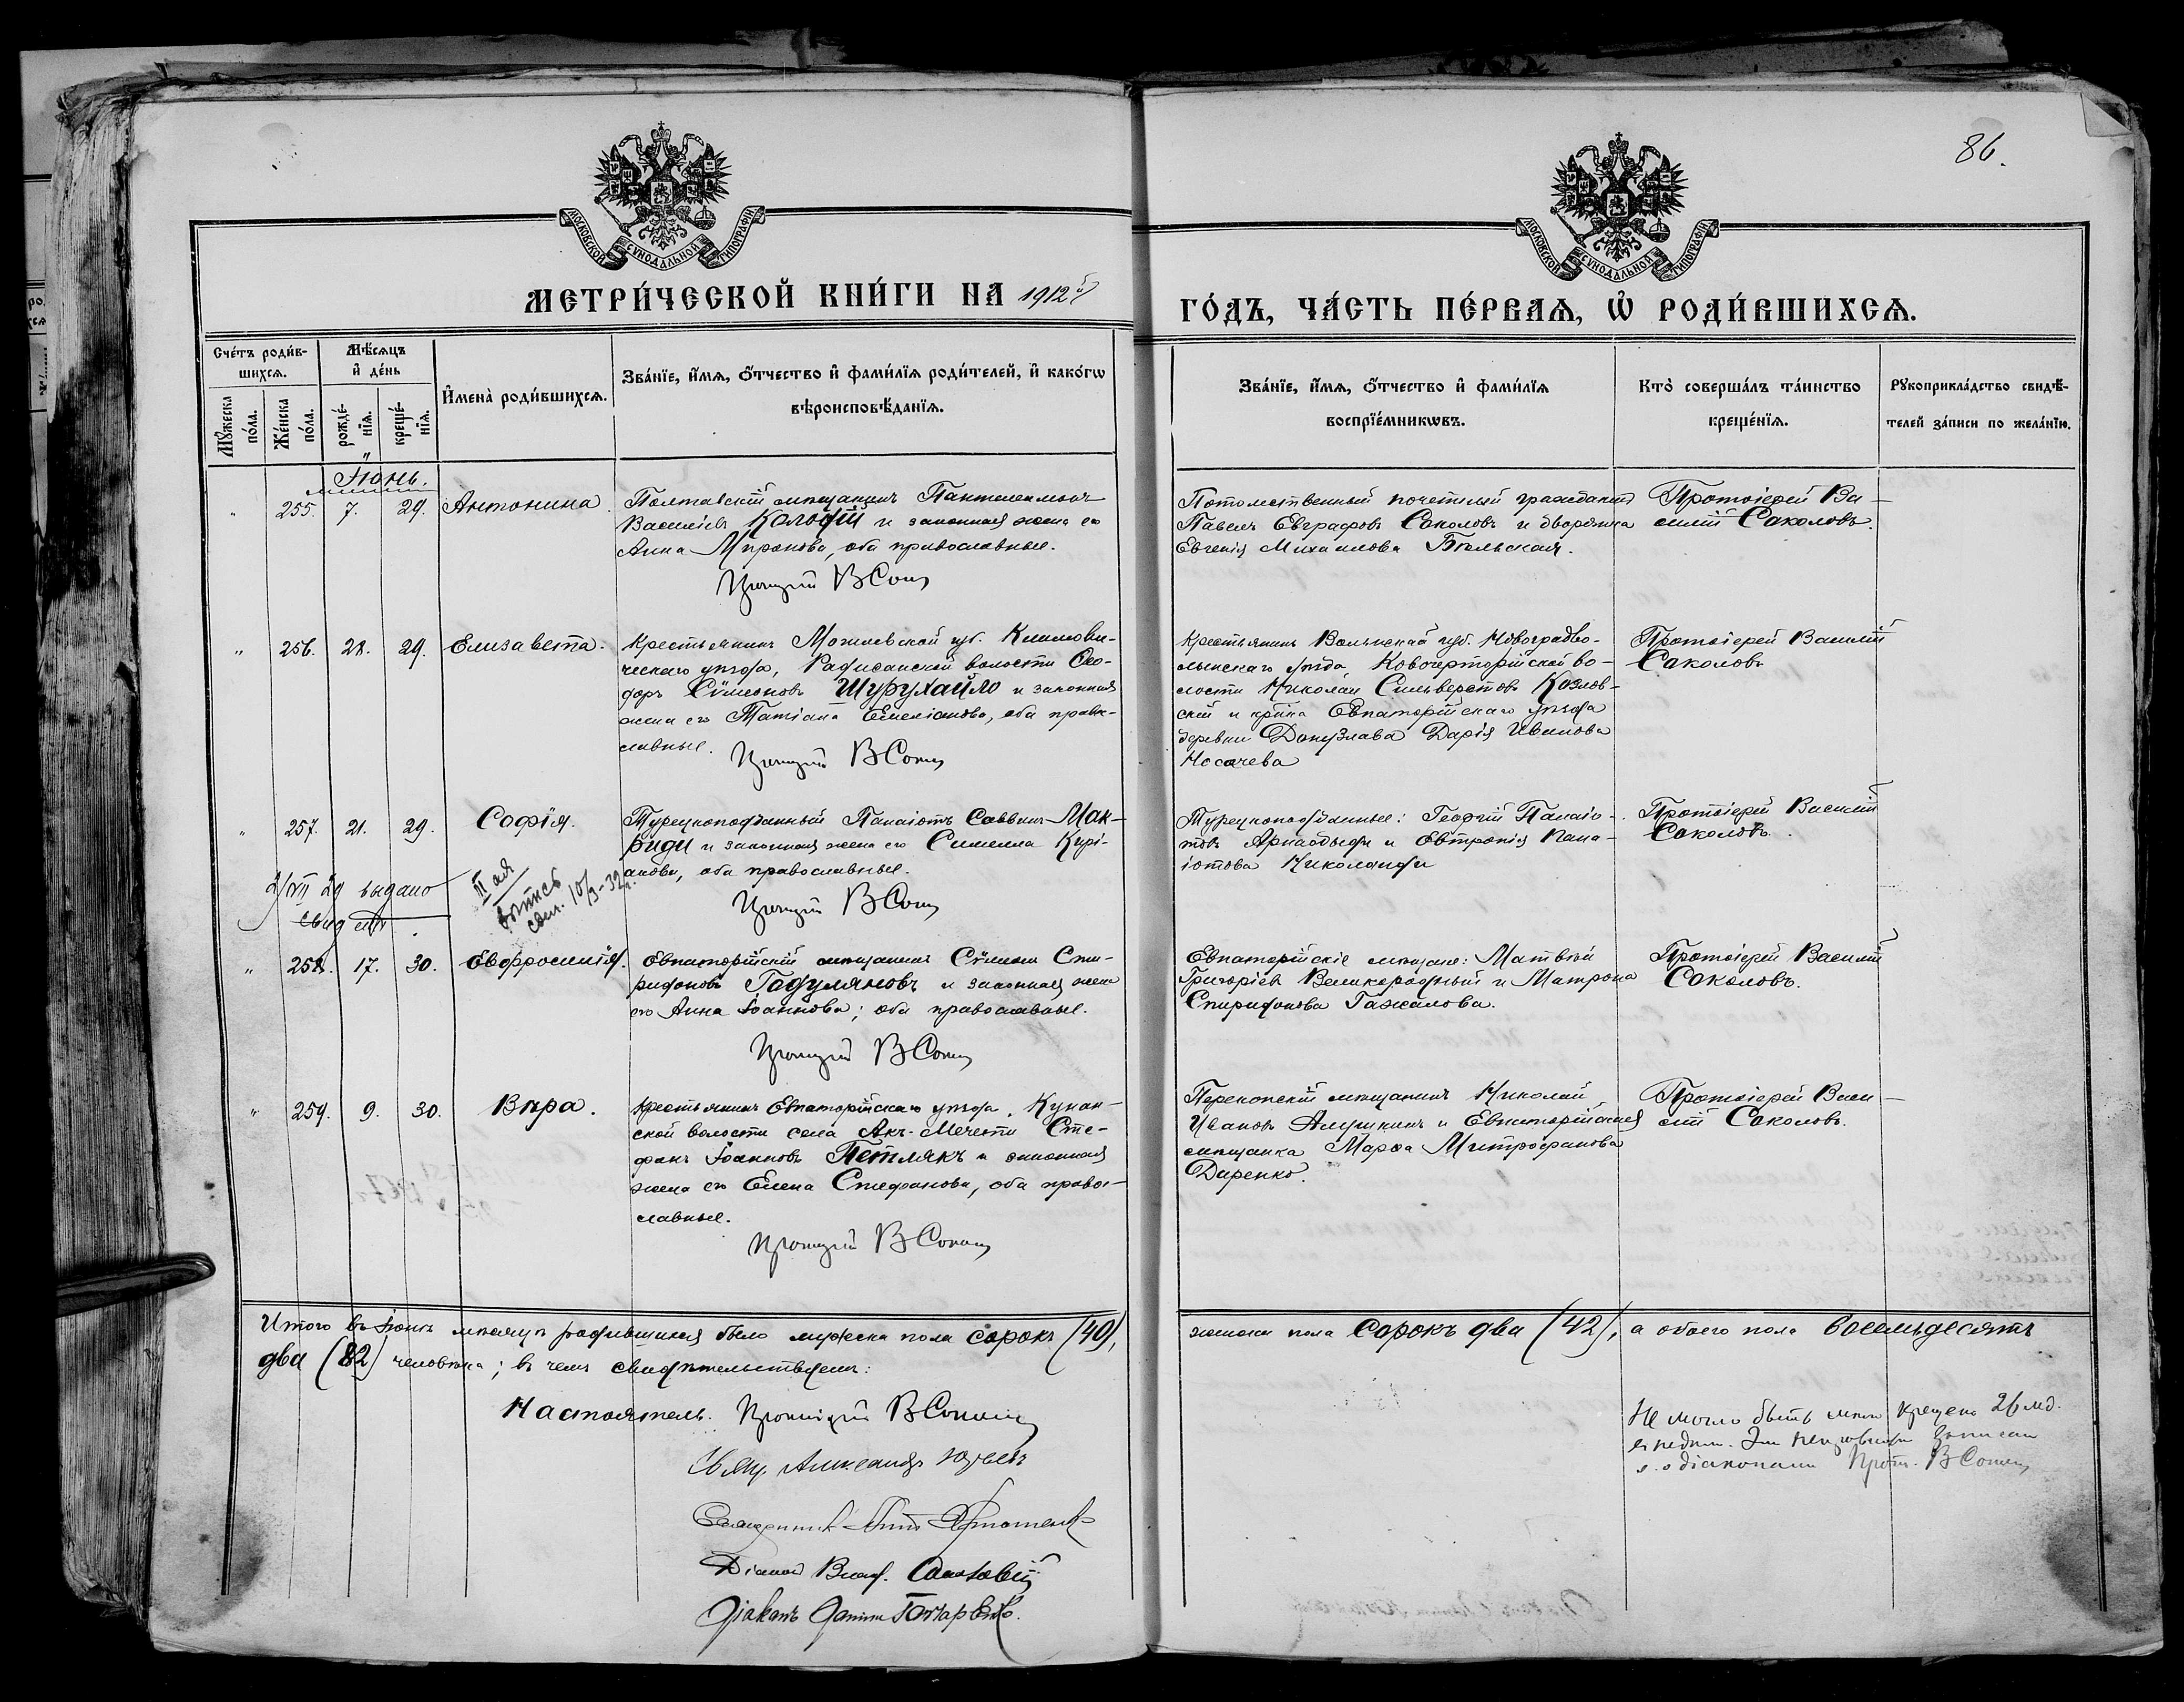 86.
МОСКОВСКОЙ СѴНОДАЛЬНОЙ ТИПОГРАФІИ
МОСКОВСКОЙ СѴНОДАЛЬНОЙ ТИПОГРАФІИ
МЕТРИ́ЧЕСКОЙ КНИ́ГИ НА 1912й
ГО́ДЪ, ЧА́СТЬ ПЕ́РВАѦ, Ѡ҆ РОДИ́ВШИХСѦ.
Сче́тъ роди́в-
шихсѧ.
Мꙋ́жеска по́ла.
Же́нска по́ла.
Мѣ́сѧцъ
и҆ де́нь
рожде́-
нїѧ.
креще́-
нїѧ.
И҆мена̀ роди́вшихсѧ.
Зва́нїе, и҆́мѧ, ѻ҆́тчество и҆ фами́лїѧ роди́телей, и҆ како́гѡ
вѣроисповѣ́данїѧ.
Зва́нїе, и҆́мѧ, ѻ҆́тчество и҆ фами́лїѧ
воспрїе́мникѡвъ.
Кто̀ соверша́лъ та́инство
креще́нїѧ.
Рꙋкоприкла́дство свидѣ́-
телей за́писи по жела́нїю.
Іюнь.
" 255. 7. 29. Антонина.
Полтавскій мѣщанинъ Пантелеимонъ
Васильевъ Колофій и законная жена его
Анна Миронова, оба православные.
Потомственный почетный гражданинъ
Павелъ Евграфовъ Соколовъ и дворянка
Евгенія Михаилова Бѣльская.
Протоіерей Ва-
силій Соколовъ.
" 256. 28. 29. Елизавета.
Крестьянинъ Могилевской губ. Климови-
ческаго уѣзда, волости Ѳео-
доръ Сѵмеоновъ Шурухайло и законная
жена его Татіана Емеліанова, оба право-
славные.
Крестьянинъ Волынской губ. Новоградво-
лынскаго уѣзда Новочерторійской во-
лости Николай Сильверстовъ Козлов-
скій и кр-нка Евпаторійскаго уѣзда
деревни Донузлава Дарія Иванова
Носачева
Протоіерей Василій
Соколовъ
" 257. 21. 29. Софія.
Турецкоподданный Панаіотъ Саввинъ Мак-
риди и законная жена его Симела Кирі-
акова, оба православные.
Турецкоподданные: Георгій Панаіо-
товъ и Евтропія Пана-
іотова Николаиди
Протоіерей Василій
Соколовъ.
29 выдано
свид
II ая
выпись
10/3-32 г.
" 258. 17. 30. Евфросинія.
Евпаторійскій мѣщанинъ Сѵмеонъ Спи-
ридоновъ Годуляновъ и законная жена
его Анна Іоаннова; оба православные.
Евпаторійскіе мѣщане: Матвѣй
Григорьевъ Великородный и Матрона
Спиридонова Гажалова.
Протоіерей Василій
Соколовъ.
" 259. 9. 30. Вѣра.
Крестьянинъ Евпаторійскаго уѣзда, Кунан-
ской волости села Акъ-Мечети Сте-
фанъ Іоанновъ Петлякъ и законная
жена его Елена Стефанова, оба право-
славные.
Перекопскій мѣщанинъ Николай
Ивановъ Алушкинъ и Евпаторійская
мѣщанка Марѳа Митрофанова
Даренко.
Протоіерей Васи-
лій Соколовъ.
Итого въ Іюнѣ мѣсяцѣ родившихся было мужеска пола сорокъ (40),
женска пола сорокъ два (42), а обоего пола восемьдесятъ
два (82) человѣка; въ чемъ свидѣтельствуемъ:
Настоятель
Свящ. Александръ
Діаконъ
Діаконъ
Не могло быть мною крещено 26 мл.